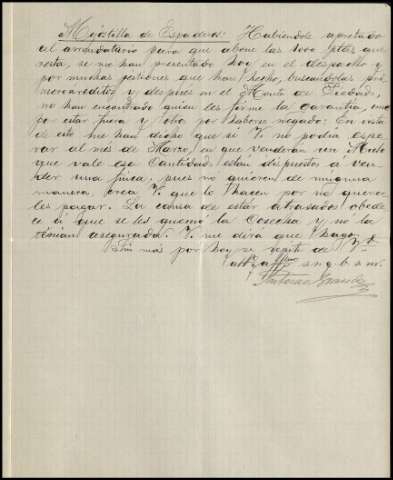 Mojotilla de Espadero: Habiendole apretado
al arrendatario para que abone las 1000 ptas que
resta, se me han presentado hoy en el despacho y
por muchas gestiones que han hecho, buscandolas pri
mero a reditos y despues en el Monte de Piedad,
no han encontrado quien les firme la garantia, uno
por estar fuera y otro por haberse negado: En vista
de esto me han dicho que si V. no podia espe
rar al mes de Marzo, en que venderán un Mulo
que vale esa cantidad, están dispuestos á ven
der una finca, pues no quieren de ninguna
manera, crea V. que lo hacen por no querer
les pagar. La causa de estar atrasados obede
ce á que se les quemó la Cosecha y no la
tenian asegurada. V. me dirá que hago.
Sin mas por hoy se repite de V.
att.º y aff.mo s. s. q. b. s. m.